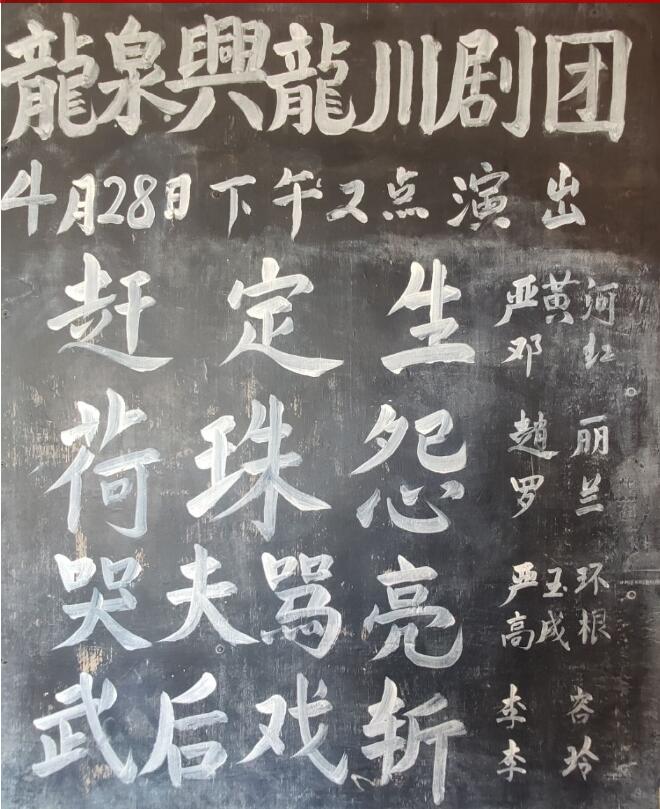 龍泉興龍川剧团
4月28日下午2点演出
赶定生 严黄河
邓红
荷珠怨 趙丽
罗兰
哭夫骂亮 严玉环
高成根
武后戏斩 李容
李玲